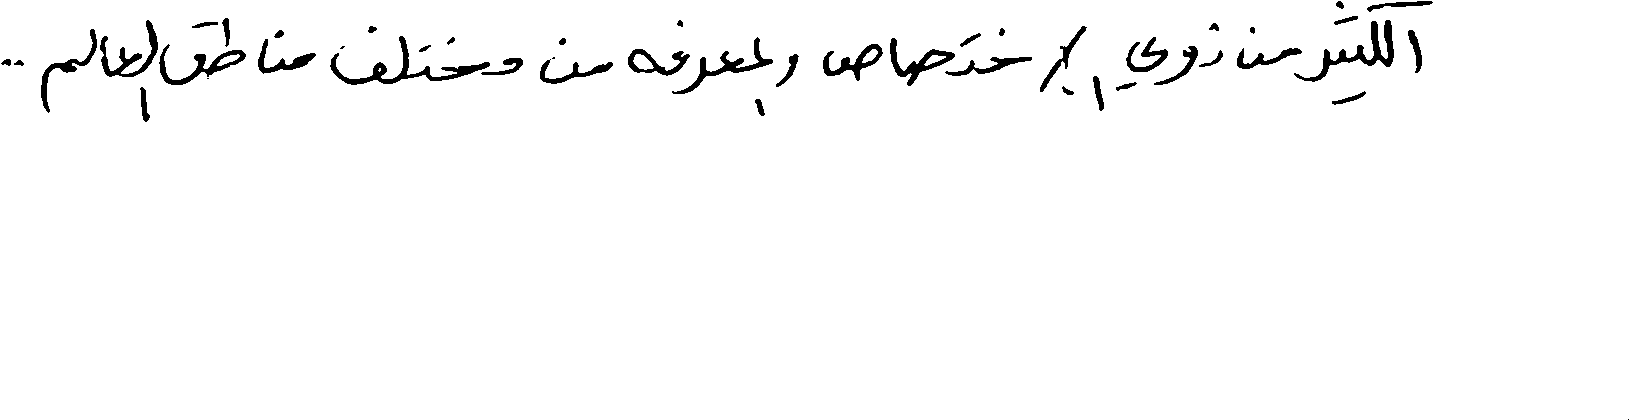 الكثير من ذوي الاختصاص والمعرفه من مختلف مناطق العالم ..